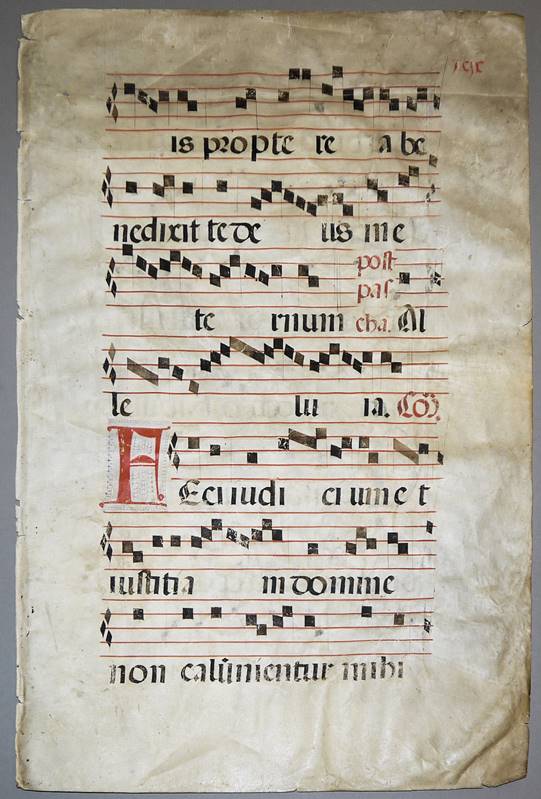 is propte re a be
nedixit te de us in e
post
pas
te rnum cha. Al
le lu ia. Cõ.
FEci iudi ci um e t
iustitia in domine
non calũnientur mihi